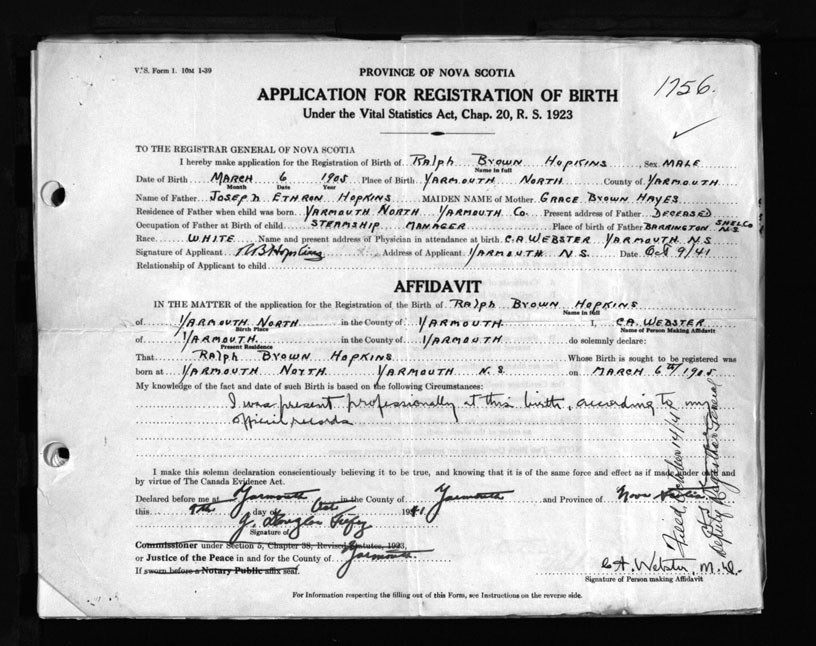 V.S. Form 1. 10M 1-39
PROVINCE OF NOVA SCOTIA
1756.
APPLICATION FOR REGISTRATION OF BIRTH
Under the Vital Statistics Act, Chap. 20, R. S. 1923
TO THE REGISTRAR GENERAL OF NOVA SCOTIA
I hereby make application for the Registration of Birth of Ralph Brown Hopkins, Sex MALE
Name in full
Date of Birth MARCH 6 1905 Place of Birth YARMOUTH NORTH County of YARMOUTH
Month Date Year
Name of Father JOSEPH ETHRON HOPKINS MAIDEN NAME of Mother GRACE BROWN HAYES
Residence of Father when child was born YARMOUTH NORTH YARMOUTH Co. Present address of Father DECEASED
Occupation of Father at Birth of child STEAMSHIP MANAGER Place of birth of Father BARRINGTON SHEL Co N.S
Race WHITE Name and present address of Physician in attendance at birth C.A. WEBSTER YARMOUTH N.S
Signature of Applicant R B Hopkins Address of Applicant YARMOUTH N.S. Date Oct 9/41
Relationship of Applicant to child
AFFIDAVIT
IN THE MATTER of the application for the Registration of the Birth of RALPH BROWN HOPKINS
Name in full
of YARMOUTH NORTH in the County of YARMOUTH I, C.A. WEBSTER
Birth Place Name of Person Making Affidavit
of YARMOUTH in the County of YARMOUTH do solemnly declare:
Present Residence
That RALPH BROWN HOPKINS Whose Birth is sought to be registered was
born at YARMOUTH NORTH YARMOUTH N.S on MARCH 6th/1905
My knowledge of the fact and date of such Birth is based on the following Circumstances:
I was present professionally at this birth, according to my
official records
I make this solemn declaration conscientiously believing it to be true, and knowing that it is of the same force and effect as if made under oath and
by virtue of The Canada Evidence Act.
Declared before me at Yarmouth in the County of Yarmouth and Province of Nova Scotia
this 9th day of Oct 1941
J. Douglas
Signature of
Commissioner under Section 5, Chapter 38, Revised Statutes, 1923,
or Justice of the Peace in and for the County of Yarmouth
If sworn before a Notary Public affix seal.
C A. Webster, M.D.
Signature of Person making Affidavit
Filed October 14/41
Deputy Registrar General
For Information respecting the filling out of this Form, see Instructions on the reverse side.